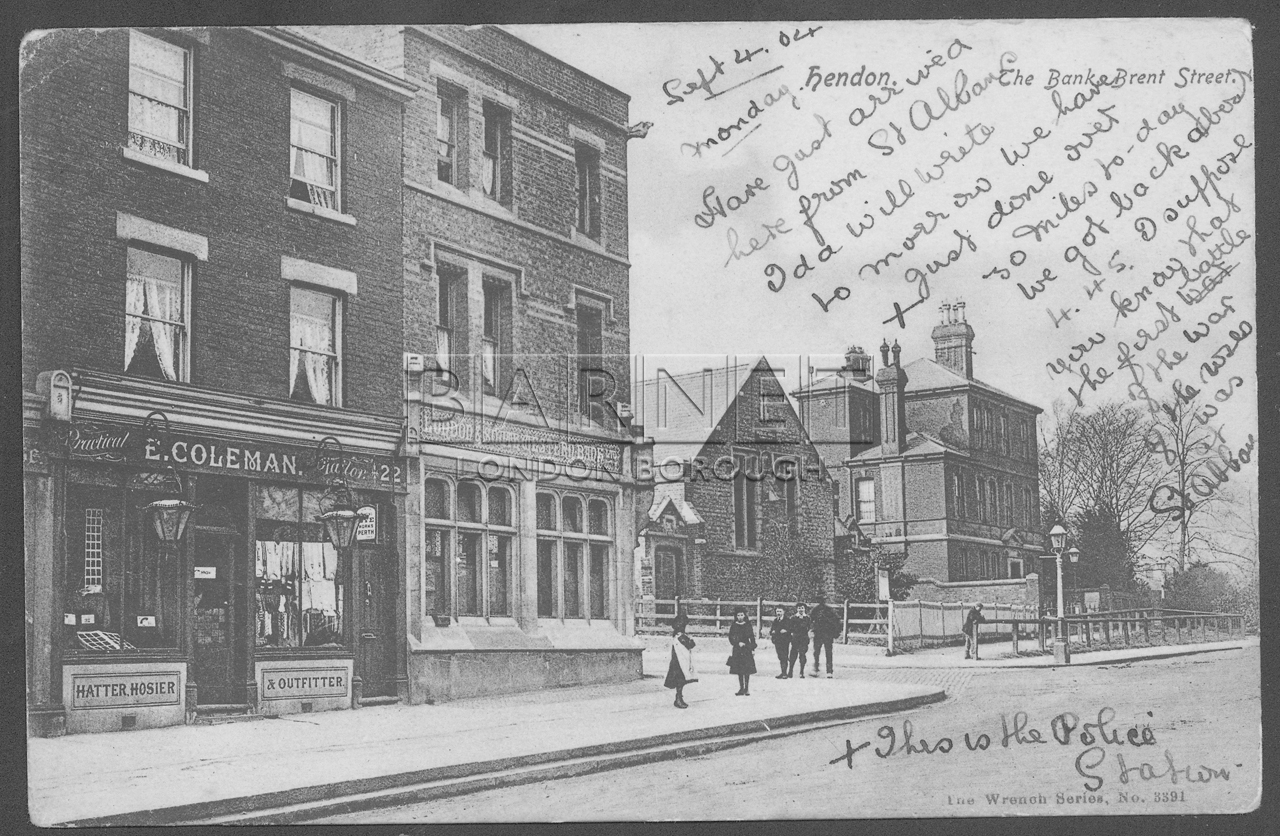 Hendon.
The Bank, Brent Street.
Sept 4. 04
Monday.
Have Just arrived
here from St Albans
Ida will write
to morrow we have
+ Just done over
50 miles to-day
we got back about
4.45. I suppose
you know that
the first battle
of the war
of the roses
was at
St Albans
BARNET
LONDON BOROUGH
Practical
E. COLEMAN.
Tailor
22
HATTER, HOSIER
& OUTFITTER.
PERTH
+ This is the Police
Station
The Wrench Series, No. 3391